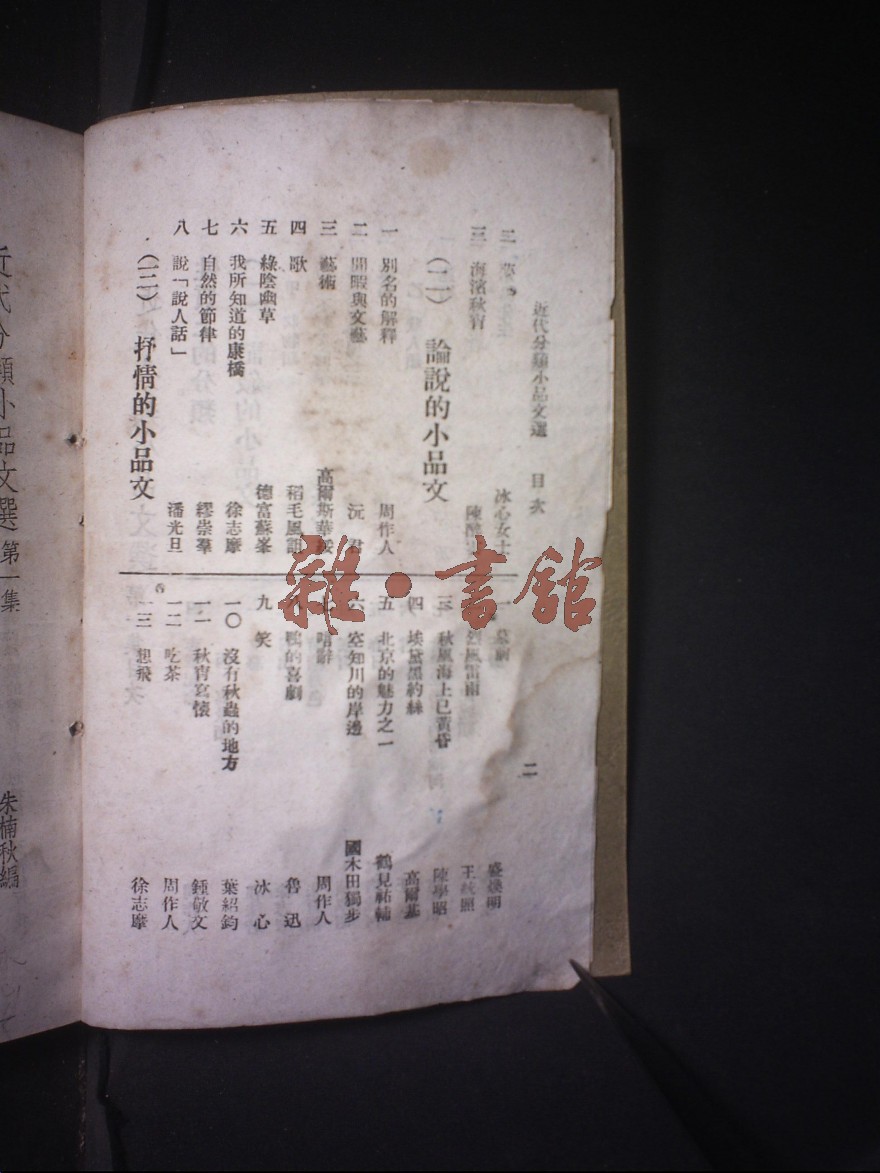 近代分類小品文選 目次
二
二
三 海濱秋宵
冰心女士
陳
(二) 論說的小品文
一 別名的解釋 周作人
二 閒暇與文藝 沅君
三 藝術 高爾斯華綏
四 歌 稻毛風
五 綠陰幽草 德富蘇峯
六 我所知道的康橋 徐志摩
七 自然的節律 繆崇羣
八 說「說人話」 潘光旦
(三) 抒情的小品文
一 盛煥明
烈風雷雨 王統照
三 秋風海上已黃昏 陳學昭
四 埃黛黑約絲 高爾基
五 北京的魅力之一 鶴見祐輔
六 空知川的岸邊 國木田獨步
唁辭 周作人
鴨的喜劇 魯迅
九 笑 冰心
一〇 沒有秋蟲的地方 葉紹鈞
一一 秋宵寫懷 鍾敬文
一二 吃茶 周作人
一三 想飛 徐志摩
近代分類小品文選 第一集
朱楠秋編
雜·書館